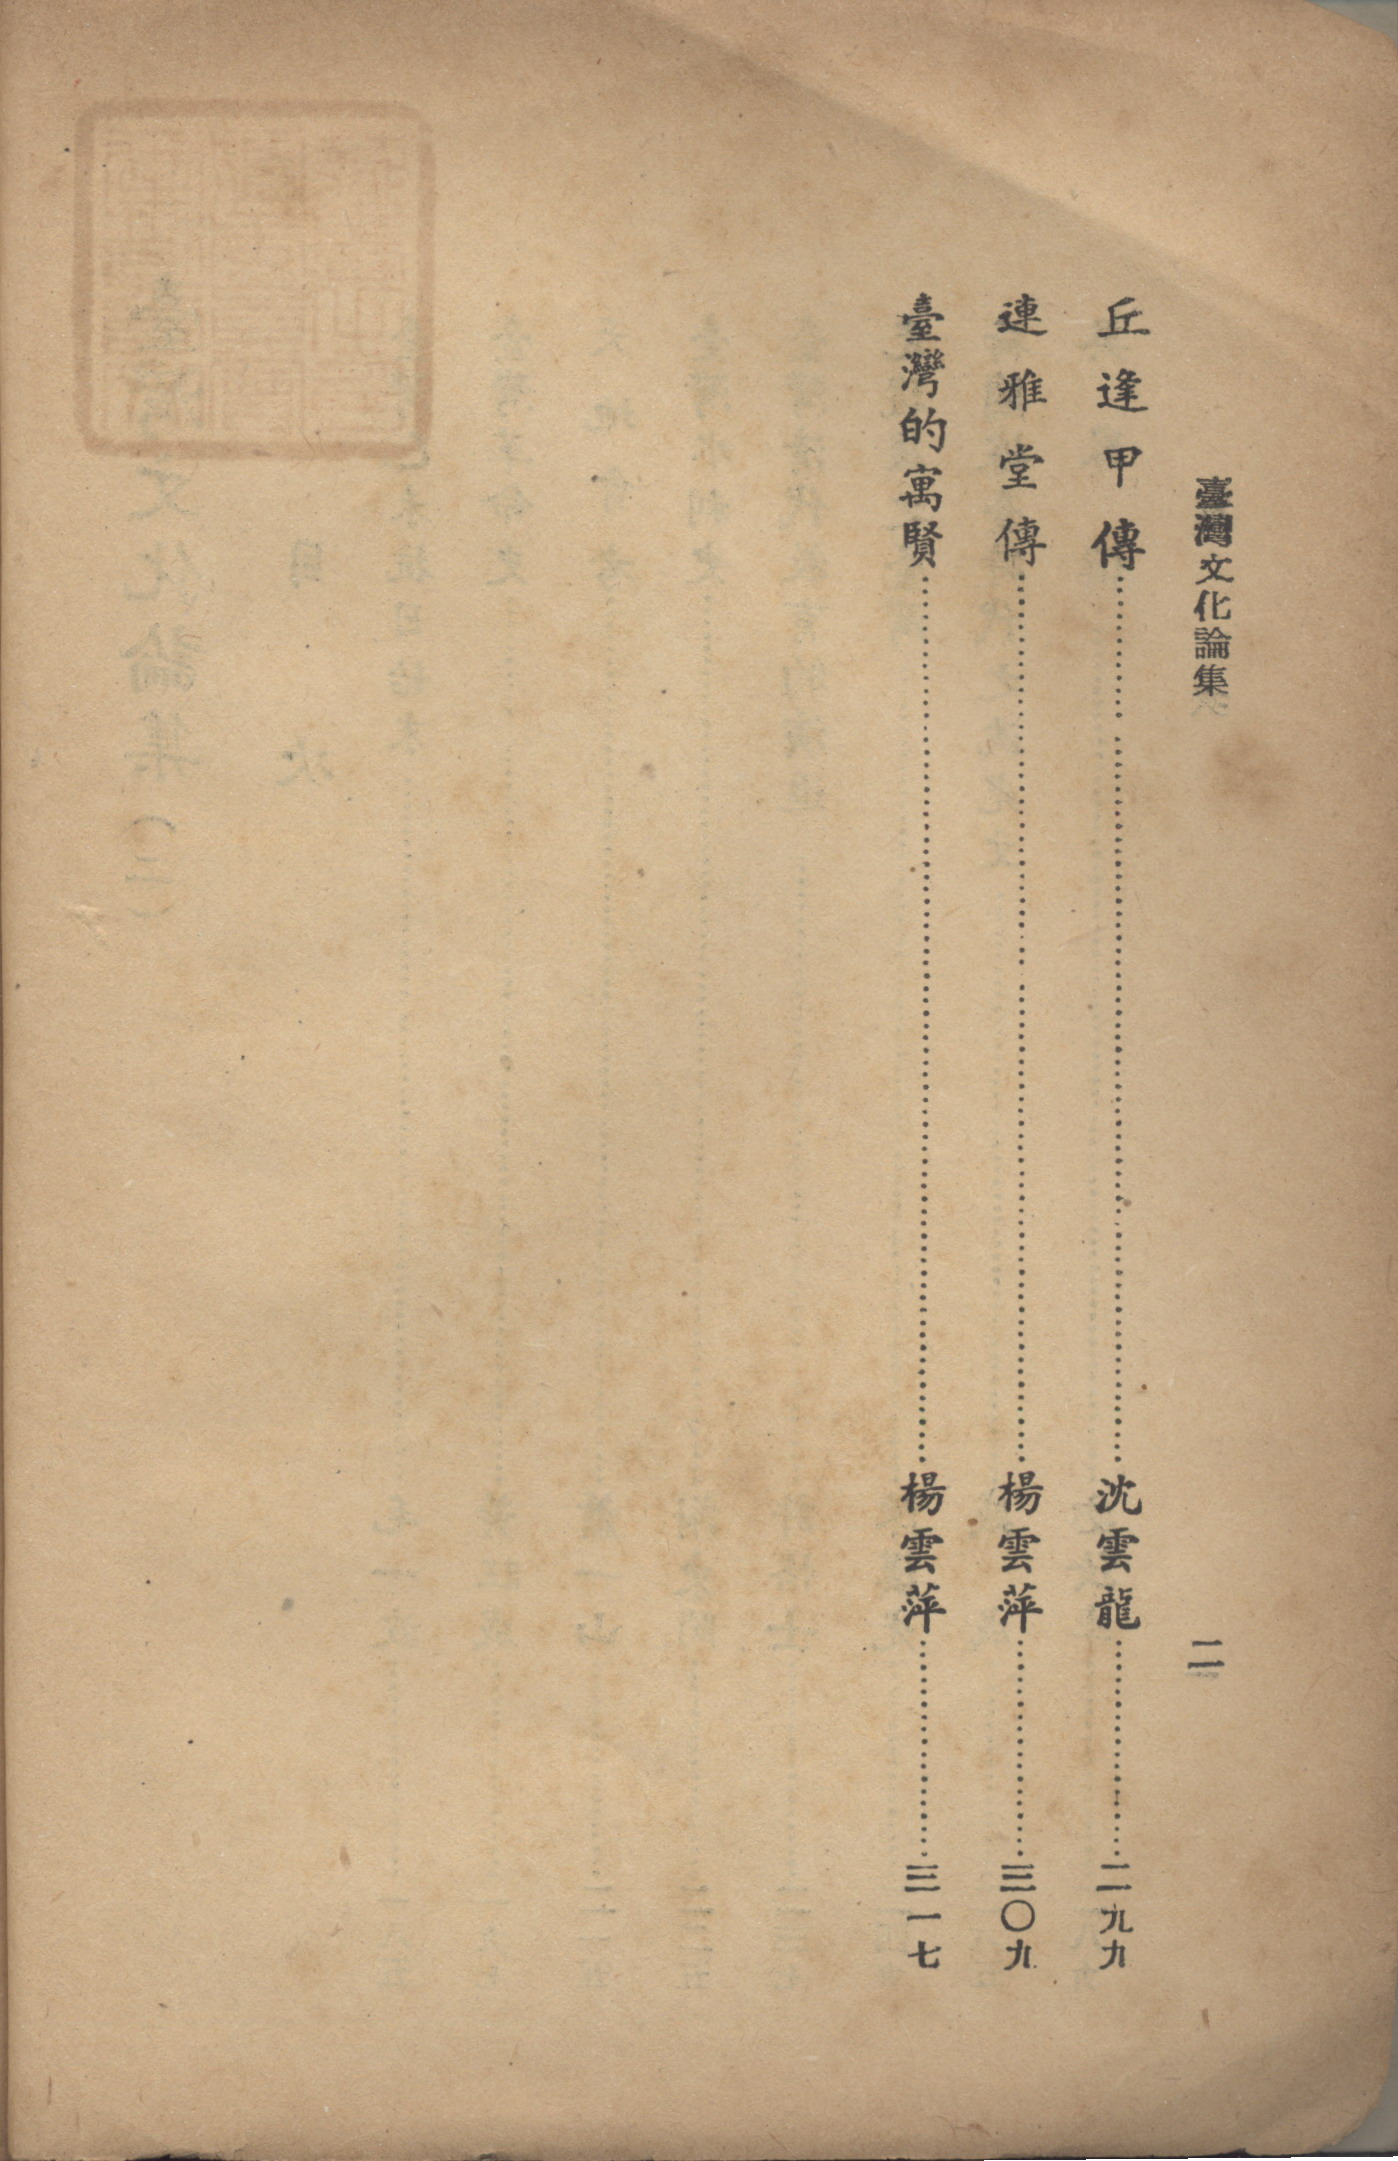 臺灣文化論集
二
丘逢甲傳……沈雲龍……二九九
連雅堂傳……楊雲萍……三〇九
臺灣的寓賢……楊雲萍……三一七